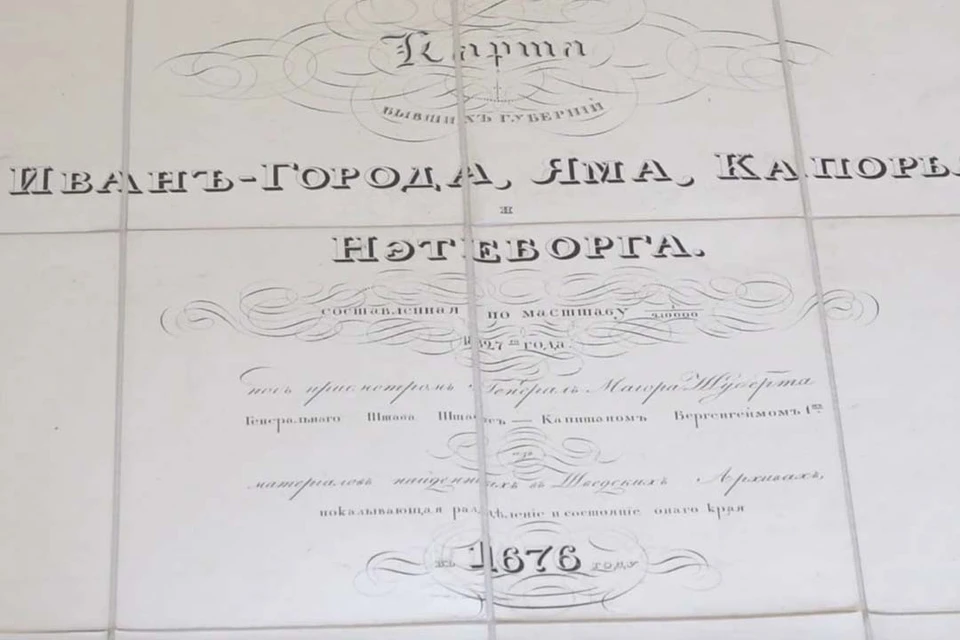 Карта
бывшихъ губерній
Иванъ-Города, Яма, Капорья
и
Нэтеборга.
составленная по масштабу 1/210000
1827го года.
подъ присмотромъ Генералъ Маіора Шуберта
Генеральнаго Штаба Штабсъ — Капитаномъ Бергенгеймомъ 1мъ
изъ
матеріаловъ найденныхъ въ Шведскихъ Архивахъ,
показывающая раздѣленіе и состояніе онаго края
въ 1676 году